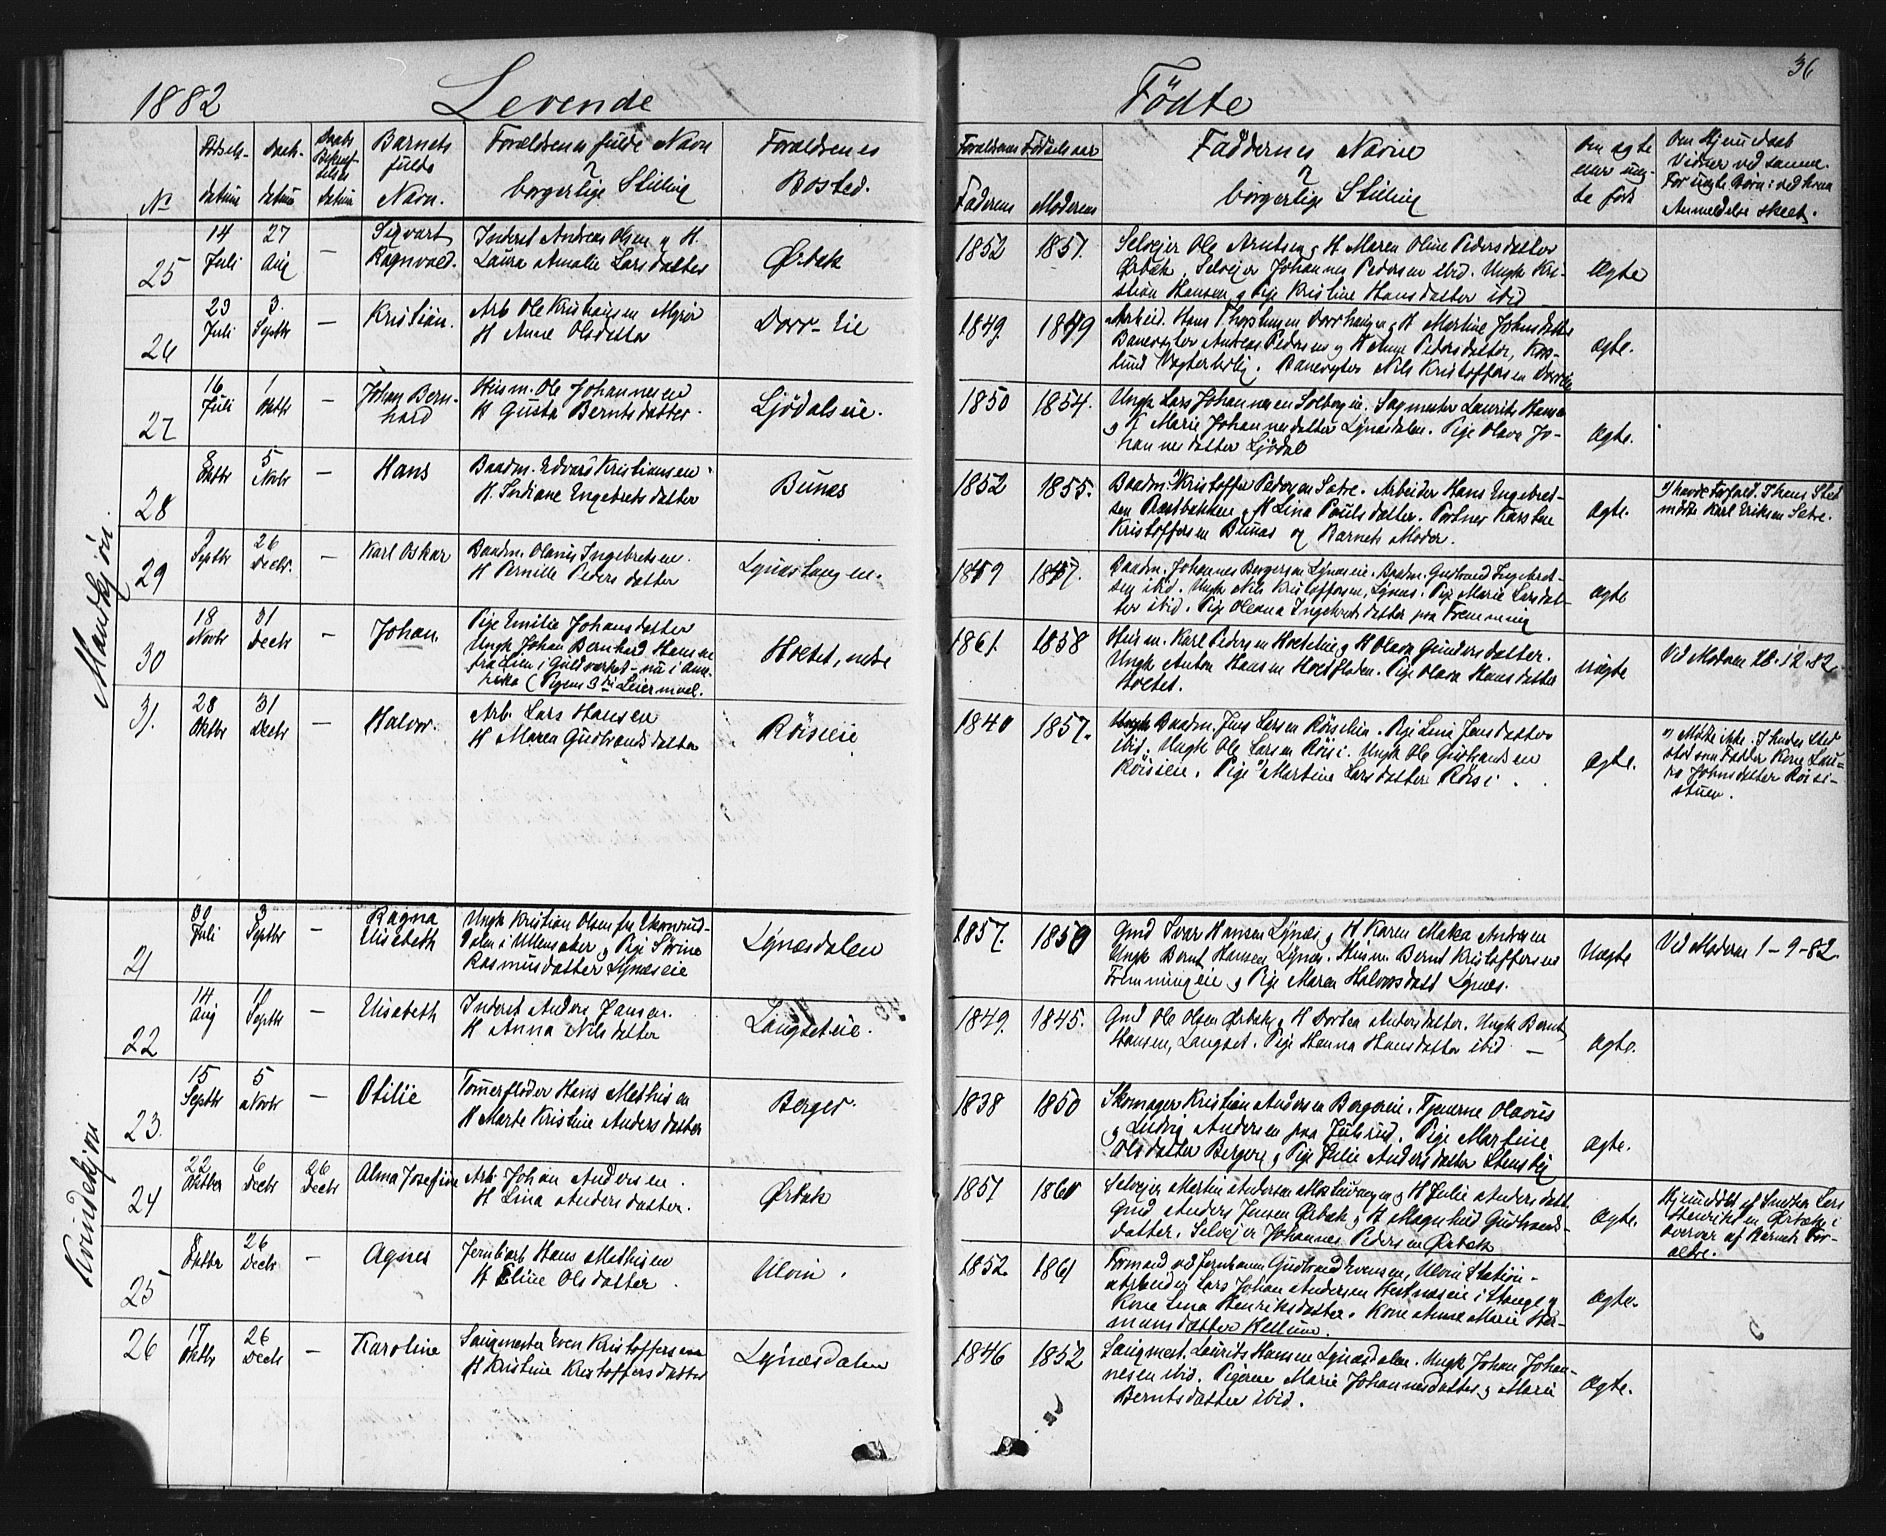 36
1882 Levende Fødte
No
Fødsels-
datum
Daab-
datum
Daabs
datum
Barnets
fulde
Navn.
Forældrenes fulde Navn
borgerlige Stilling
Forældrenes
Bosted.
Forældrenes Fødselsaar
Faderens Moderens
Faddernes Navne
borgerlige Stilling
Om ægte
eller uæg-
te født
Om Hjemmedaab
Vidner ved samme.
For uægte Børn: ved hvem
Anmeldelse skeet.
Mandkjøn.
25
14
Juli
27
Aug
—
Sigvart
Ragnvald.
Inderst Andreas Olsen og H.
Laura Amalie Larsdatter
Ørbæk
1852 1857.
Selvejer Ole Arntsen og H Maren Oline Pedersdatter
Ørbæk. Selvejer Johannes Pedersen ibid. Ungk Kri-
stian Hansen og Pige Kristine Hansdatter ibid
Ægte
26
23
Juli
3.
Septbr
—
Kristian.
Arb Ole Kristiansen
H Anne Olsdatter
Dorr-Eie
1849. 1849
Arbeid. Hans Thorstensen Dorrhaugen og H Martine Johnsdatter
Banevogter Andreas Pedersen og H Anne Pedersdatter,
Vogterbolig. Banevogter Nils Kristoffersen Dorreie
Ægte.
27
16
Juli
1
Oktbr
—
Johan Bern-
hard
Husm. Ole Johannesen
H Gusta Berntsdatter.
Ljødalseie.
1850 1854.
Ungk Lars Johannesen Solbergeie. Sagmester Laurits Hansen
og H Marie Johannesdatter Lynæsdalen. Pige Olava Jo-
hannesdatter Ljødal
Ægte.
28
8
Oktbr
5
Novbr
—
Hans
Baadm. Edvard Kristiansen
H. Indiane Engebretsdatter
Bunæs
1852 1855.
Baadm. Kristoffer Pedersen Sætre. Arbeider Hans Engebret-
sen Præstbakken og H Lina Poulsdatter. Portner Karsten
Kristoffersen Bunæs og Barnets Moder.
Ægte.
havde Forfald. I hans Sted
mødte Karl Eriksen Sætre.
29
9
Septbr
26
Decbr.
—
Karl Oskar
Baadm. Olaus Ingebretsen.
H Pernille Pedersdatter
Lynæshaugen.
1859 1857.
Baadm. Johannes Borgersen Lynæseie. Baadm. Gudbrand Ingebret-
sen ibid. Ungk Nils Kristoffersen, Lynæs. Pige Marie Larsdat-
ter ibid. Pige Oleana Ingebretsdatter paa Fremming
Ægte
30
18
Novbr
31
Decbr
—
Johan
Pige Emilie Johansdatter
Ungk Johan Bernhard Hansen
fra Lien i Guldværket – nu i Ame-
rika (Pigens 3die Leiermaal.
Hoelet, nedre
1861. 1858
Husm. Karl Pedersen Hoeteie og H Olava Gundersdatter.
Ungk Anton Hansen Hoelfloden. Pige Olava Hansdatter
Hoelet.
uægte
Ved Moderen 28-12-82
31.
28
Oktbr
31
Decbr
—
Halvor.
Arb. Lars Hansen
H Maren Gudbrandsdatter
Røiseie
1840 1857.
Baadm. Jens Larsen Røiseeie. Pige Lina Jensdatter
ibid. Ungk Ole Larsen Røisi. Ungk Ole Gudbrandsen
Røiseie. Pige Martine Larsdatter Røisi.
Ægte.
Mødte ikke. I hendes Sted
stod som Fadder Kone Lau-
ra Johnsdatter Røisi-
stuen.
Kvindekjøn
21
30
Juli
3
Septbr
—
Ragna
Elisabeth
Ungk Kristian Olsen fra Ekornrud-
dalen i Ullensaker og Pige Stine
Rasmusdatter Lynæseie
Lynæsdalen
1857. 1859
Gmd Ivar Hansen Lynæs og H Karen Mathea Andersen
Ungk Bernt Hansen Lynæs. Husm. Bernt Kristoffersen
Fremmingeie og Pige Maren Halvorsdatt Lynæs.
Uægte
Ved Moderen 1-9-82.
22
14
Aug
10
Septbr
—
Elisabeth
Inderst Anders Jansen.
H Anna Nilsdatter
Langseteie.
1849. 1845.
Gmd Ole Olsen Ørbæk og H Dorthea Andersdatter. Ungk Bernt
Hansen, Langset. Pige Hanna Hansdatter ibid —
Ægte.
23.
15
Septbr
5
Novbr
—
Otilie
Tømmerfløder Hans Mathisen
H Marte Kristine Andersdatter
Berger
1838 1850
Skomager Kristian Andersen Bergereie. Tjenerne Olaves
og Ludvig Andersen paa Julsrud. Pige Martine
Olsdatter Berger og Pige Julie Andersdatter Stensby
Ægte.
24
22
Oktber
6
Decbr
26
Decbr
Alma Josefine
Arb. Johan Andersen.
H Lina Andersdatter.
Ørbæk
1857 1860
Selvejer Martin Andersen og H Julie Andersdatt.
Gmd Anders Jensen Ørbæk og H Magnhild Gudbrands-
datter. Selvejer Johannes Pedersen Ørbæk
Ægte.
Hjemmedøbt af Snedker Lars
Henriksen Ørbæk i
overvær af Barnets For-
ældre.
25
8
Oktbr
26
Decbr
—
Agnes
Jernbarb Hans Mathisen
H Eline Olsdatter.
Ulvin.
1852 1861
Formand ved Jernbanen Gudbrand Evensen, Ulvin Station.
Arbeider Lars Johan Andersen Hestnæseie i Stange og
Kone Lina Henriksdatter. Kone Anne Marie Her-
mansdatter Kellum.
Ægte.
26
17
Oktbr
26
Decbr
—
Karoline
Saugmester Even Kristoffersen
H Kristine Kristoffersdatter
Lynæsdalen
1846 1852
Saugmest. Laurits Hansen Lynæsdalen. Ungk Johan Johan-
nesen ibid. Pigerne Marie Johannesdatter og Marie
Berntsdatter ibid.
Ægte.